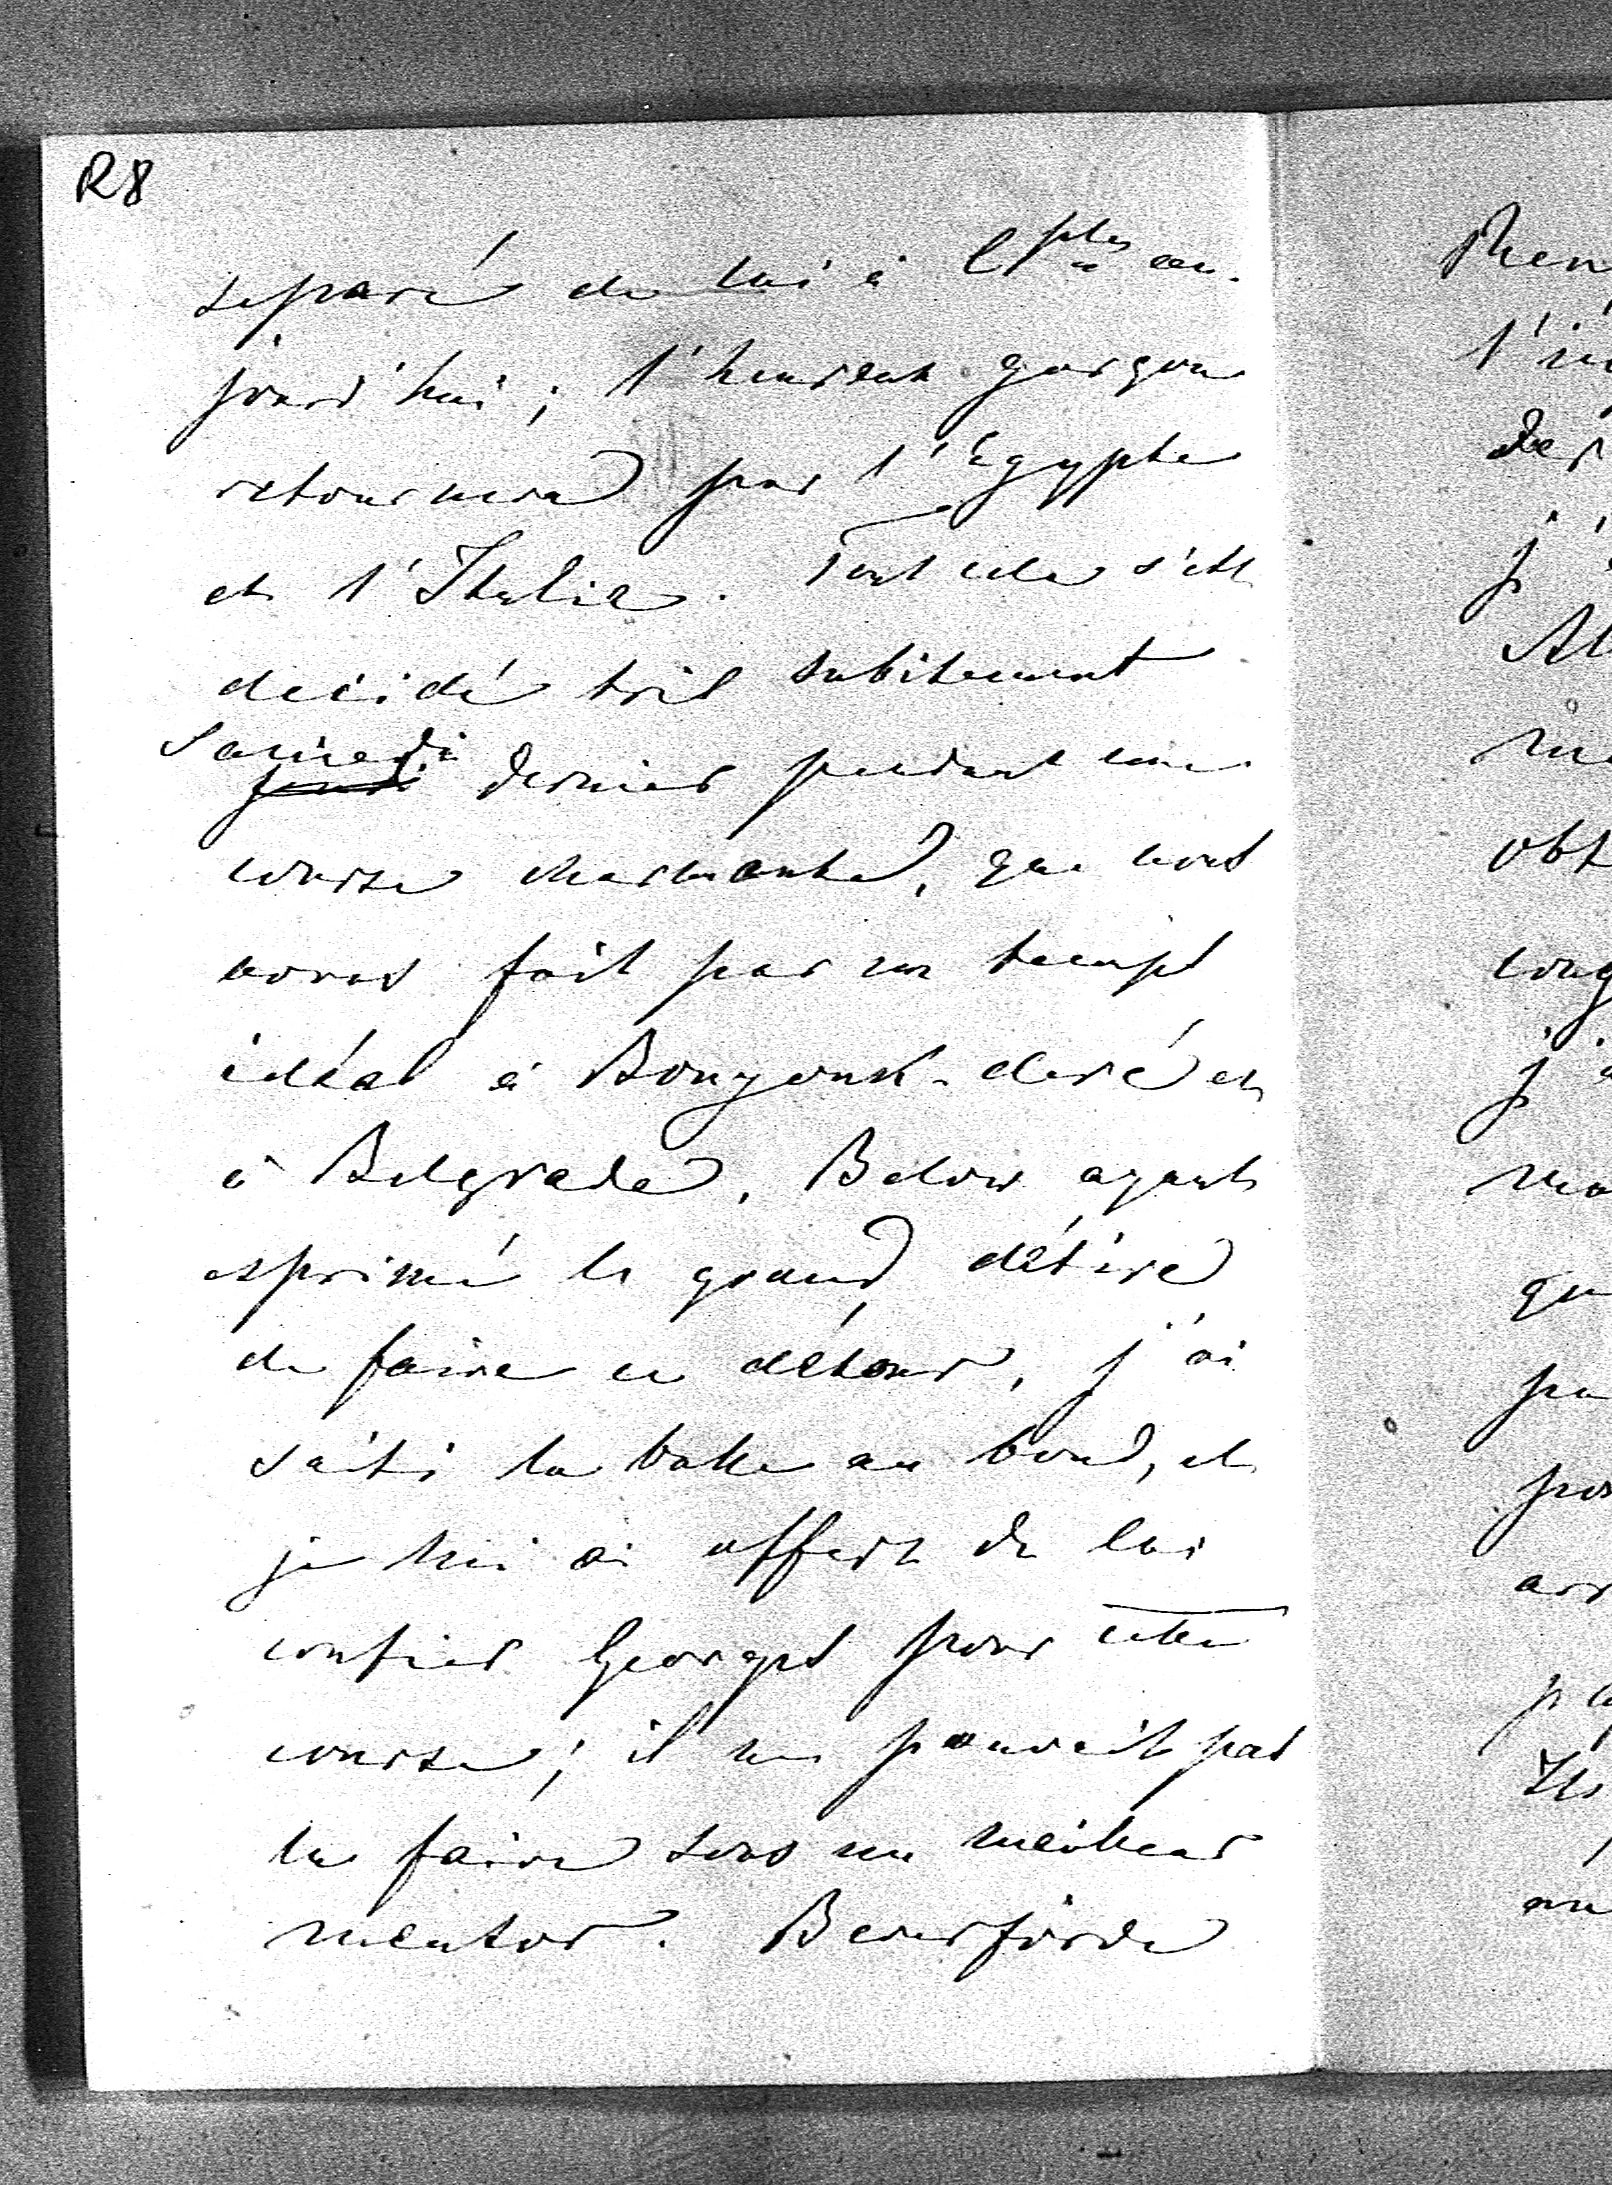 R8
separé de lui à C^ples au-
jourd'hui; l'heureux garçon
retournera par l'Egypte
et l'Italie. Tout cela s'est
decidé très subitement
Samedi
jeudi dernier pendant une
course charmante, que nous
avons fait par un temps
idéal à Bouyouk-deré et
à Belgrade. Below ayant
exprimé le grand désire
de faire ce détour, j'ai
saisi la balle au bond, et
je lui ai offert de lui
confier Georges pour cette
course; il ne pouvait pas
la faire sous un meilleur
mentor. Beverförde